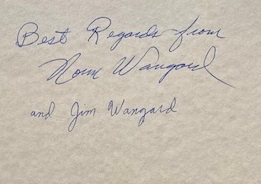 Best Regards from
Norm Wangard
and Jim Wangard